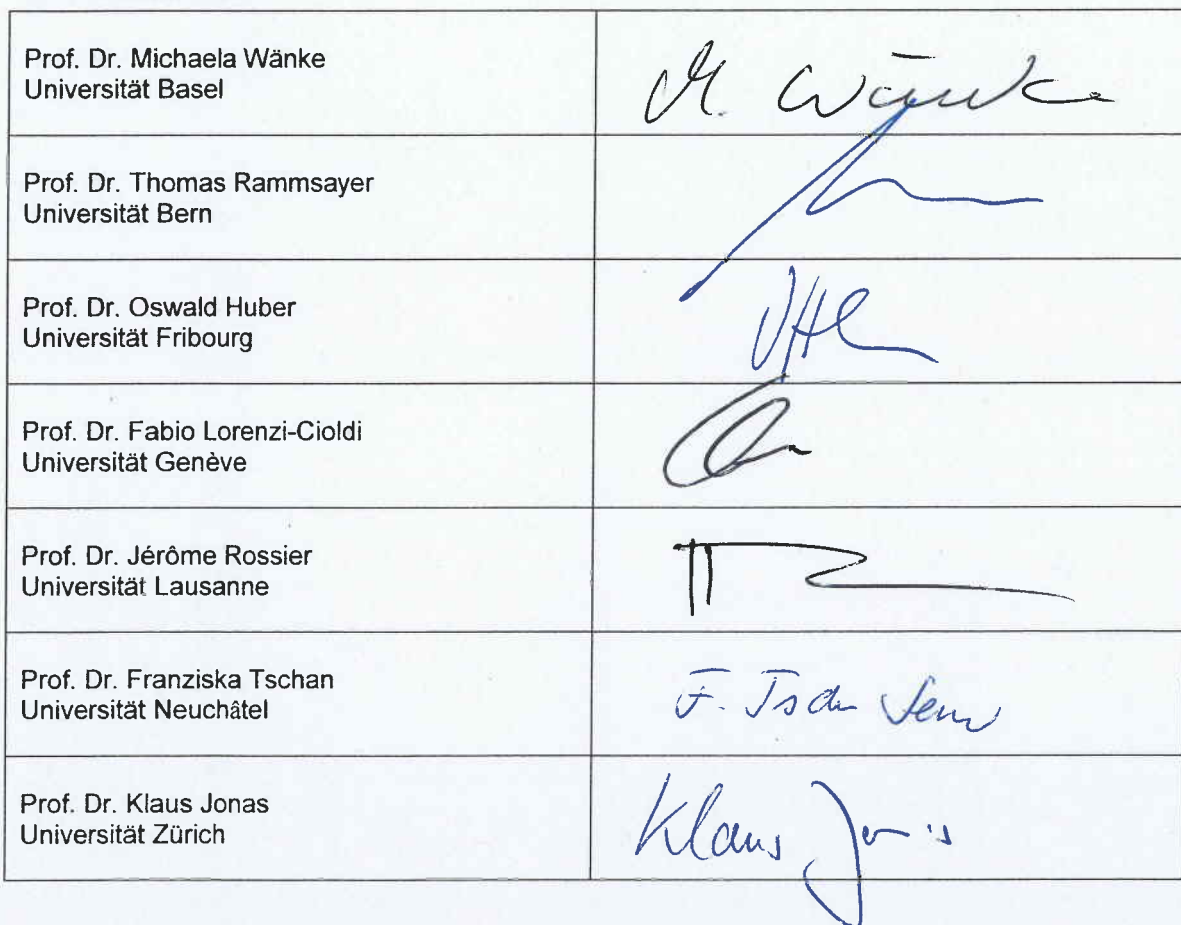 Prof. Dr. Michaela Wänke
Universität Basel
M. Wänke
Prof. Dr. Thomas Rammsayer
Universität Bern
Prof. Dr. Oswald Huber
Universität Fribourg
Prof. Dr. Fabio Lorenzi-Cioldi
Universität Genève
Prof. Dr. Jérôme Rossier
Universität Lausanne
Prof. Dr. Franziska Tschan
Universität Neuchâtel
F. Tschan
Prof. Dr. Klaus Jonas
Universität Zürich
Klaus Jonas